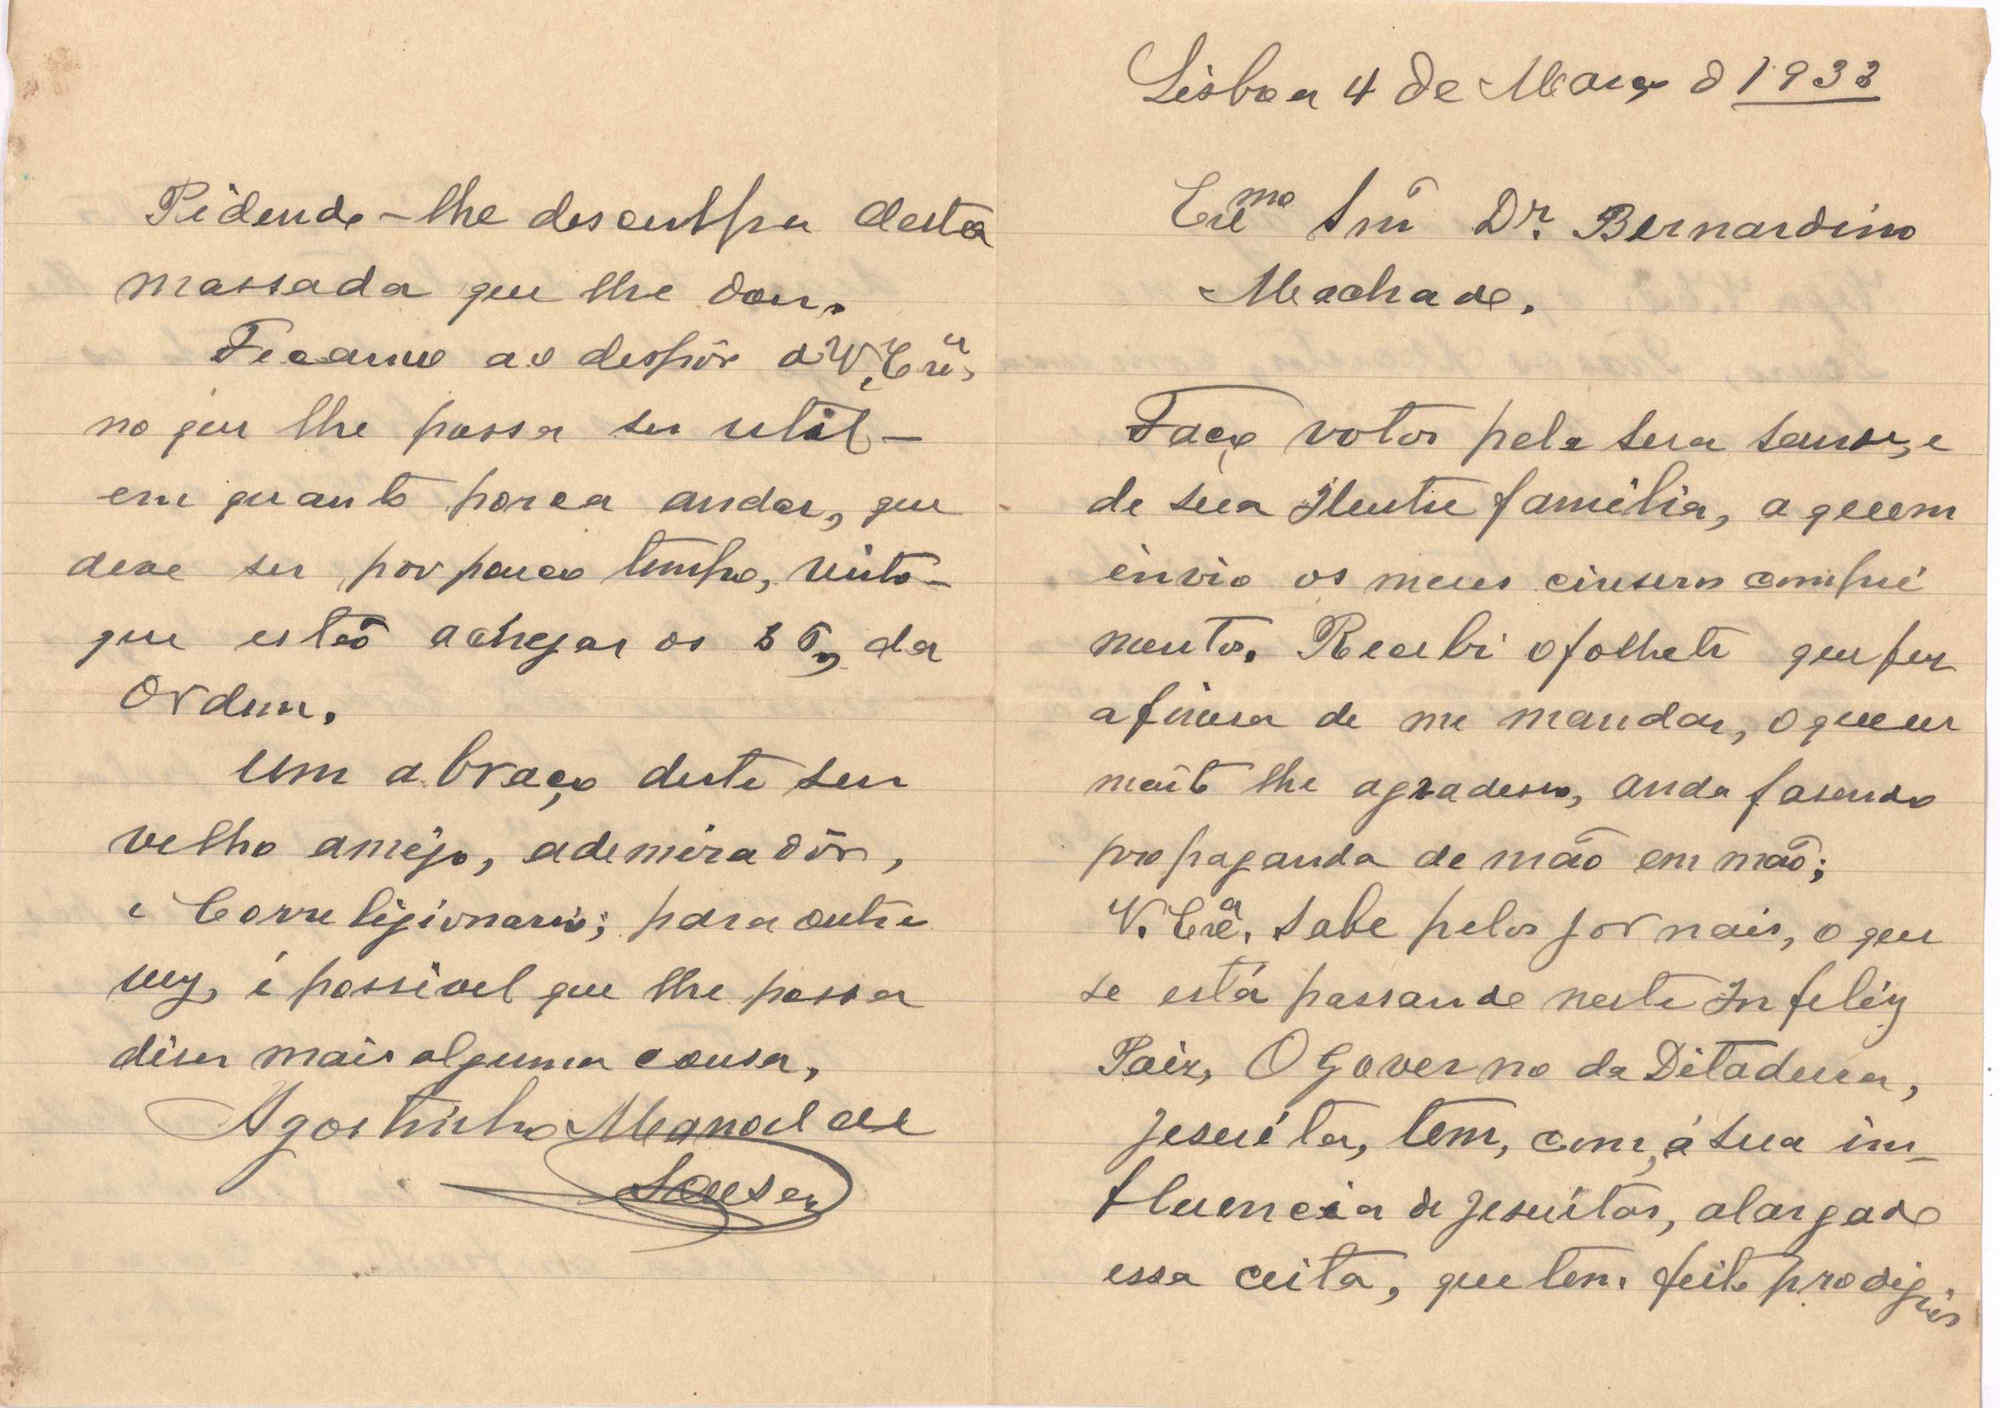 Lisboa 4 de Março d 1933
Exmo Snr Dr. Bernardino
Machado.
Faço votos pela sua saude, e
de sua Ilustre familia, a quem
invio os meus cinseros compri
mentos. Recebi o folheto que fez
a finesa de me mandar, o que eu
muito lhe agradeso, anda fasendo
propaganda de mão em mão;
V. Exa. sabe pelos jornais, o que
se está passando neste Infeliz
Paiz, O Governo da Ditadura,
jesuita, tem, com, a sua im-
fluencia de jesuitas, alargado
essa ceita, que tem feito prodigios
Pidendo-lhe desculpa desta
massada que lhe dou.
Ficamo ao dispôr d V. Exa,
no que lhe possa ser util-
em quanto porca andar, que
deve ser por pouco tempo, visto-
que estão achegar os 86, da
Ordem.
um abraço deste seu
velho amigo, ademiradôr,
e Correligionario; para outra
vez, é possivel que lhe possa
diser mais alguma cousa,
Agostinho Manoel de
Sousa